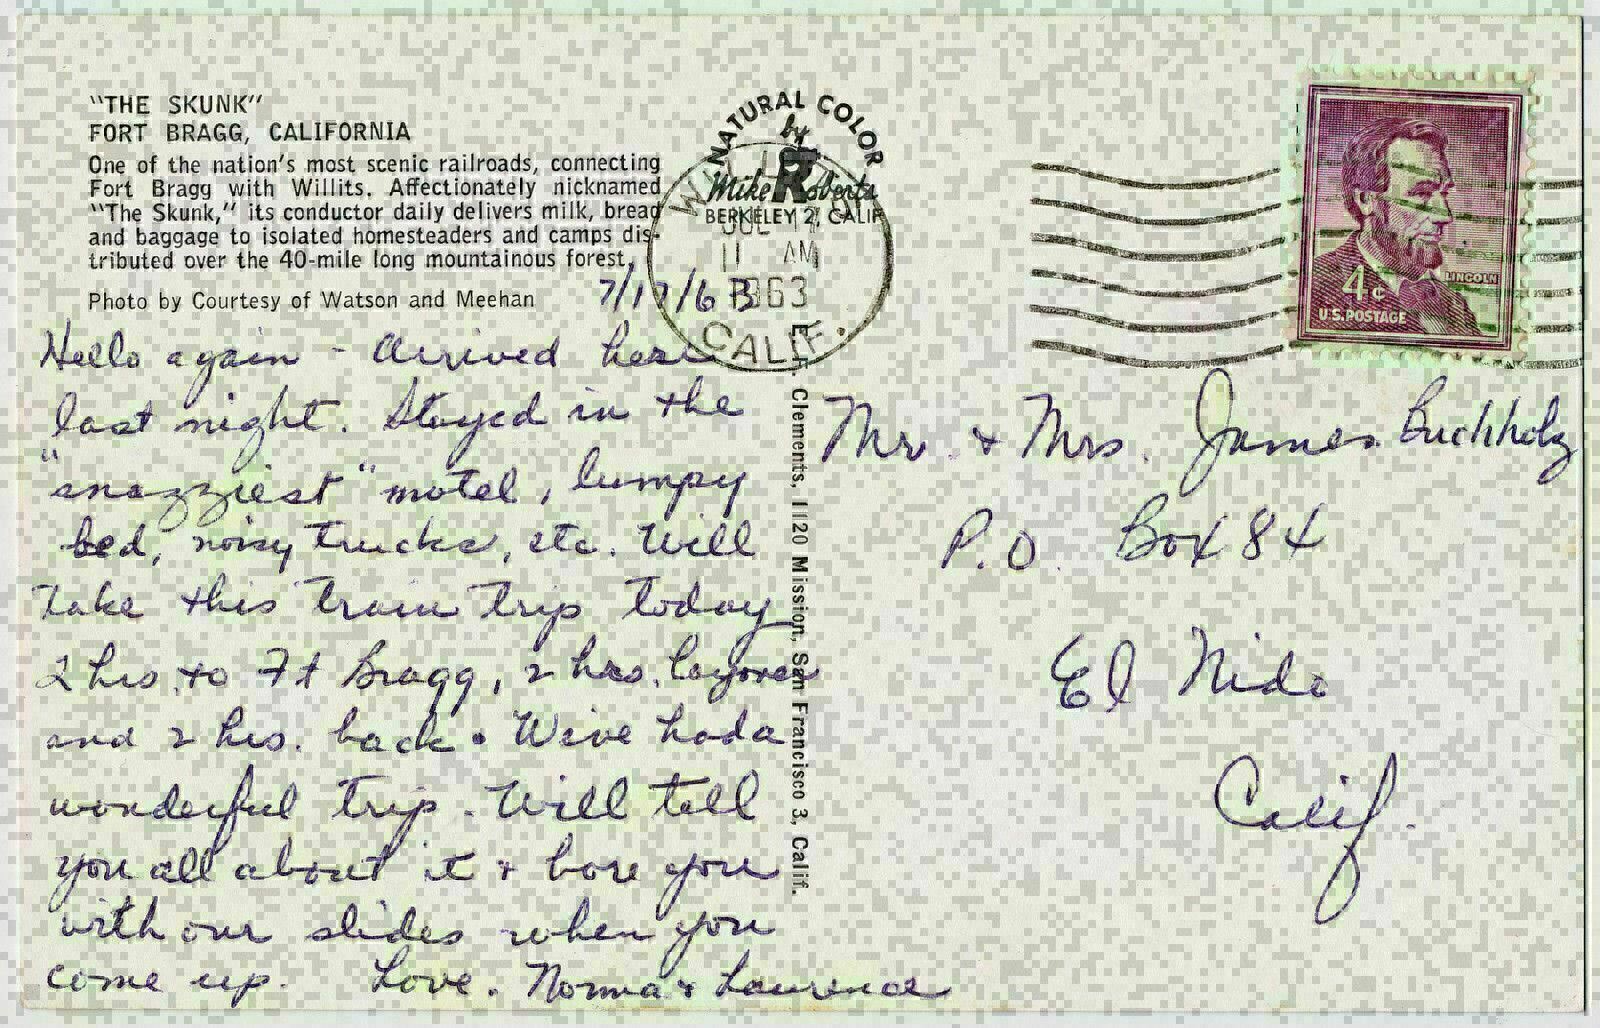 "THE SKUNK"
FORT BRAGG, CALIFORNIA
One of the nation's most scenic railroads, connecting
Fort Bragg with Willits. Affectionately nicknamed
"The Skunk," its conductor daily delivers milk, bread
and baggage to isolated homesteaders and camps dis-
tributed over the 40-mile long mountainous forest.
Photo by Courtesy of Watson and Meehan
7/17/63
Hello again - Arrived here
last night. Stayed in the
"snazziest" motel, lumpy
bed, noisy trucks, etc. Will
take this train trip today
2 hrs. to Ft Bragg, 2 hrs. layover
and 2 hrs. back. We've had a
wonderful trip. Will tell
you all about it + bore you
with our slides when you
come up. Love. Norma + Laurence
NATURAL COLOR
by
Mike Roberts
BERKELEY 2, CALIF
JUL 17
11 AM
1963
CALIF.
Clements, 1120 Mission, San Francisco 3, Calif.
LINCOLN
4¢
U.S. POSTAGE
Mr. + Mrs. James Buchholz
P.O. Box 84
El Nido
Calif.